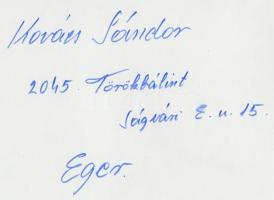 Kovács Sándor
2045. Törökbálint
Ságvári E. u. 15.
Eger.